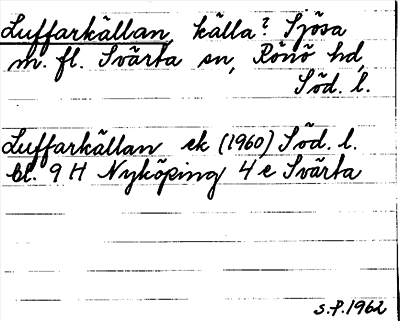 Luffarkällan, källa? Sjösa
m. fl. Svärta sn, Rönö hd,
Söd. l.
Luffarkällan ek (1960) Söd. l.
bl. 9 H Nyköping 4 e Svärta
S.P. 1962